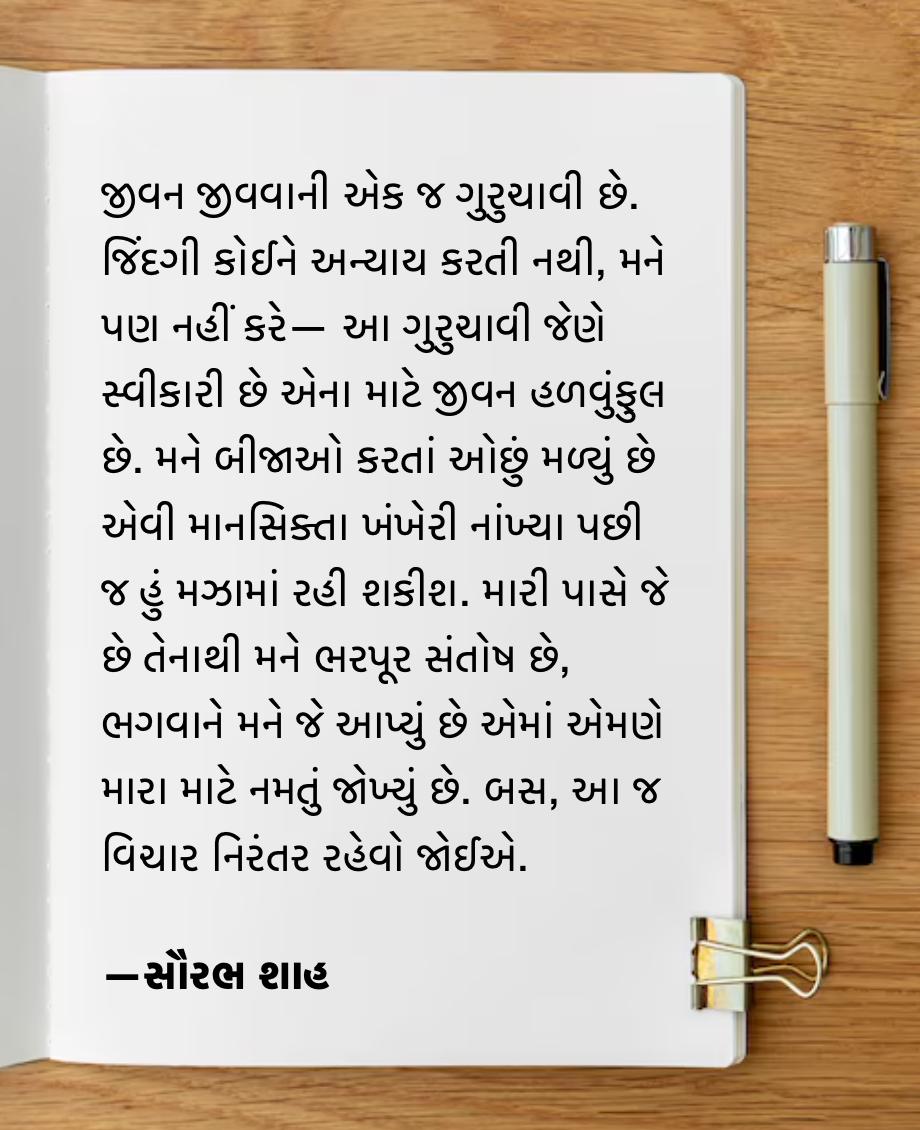 જીવન જીવવાની એક જ ગુરુચાવી છે.
જિંદગી કોઈને અન્યાય કરતી નથી, મને
પણ નહીં કરે— આ ગુરુચાવી જેણે
સ્વીકારી છે એના માટે જીવન હળવુંફુલ
છે. મને બીજાઓ કરતાં ઓછું મળ્યું છે
એવી માનસિક્તા ખંખેરી નાંખ્યા પછી
જ હું મઝામાં રહી શકીશ. મારી પાસે જે
છે તેનાથી મને ભરપૂર સંતોષ છે,
ભગવાને મને જે આપ્યું છે એમાં એમણે
મારા માટે નમતું જોખ્યું છે. બસ, આ જ
વિચાર નિરંતર રહેવો જોઈએ.
—સૌરભ શાહ